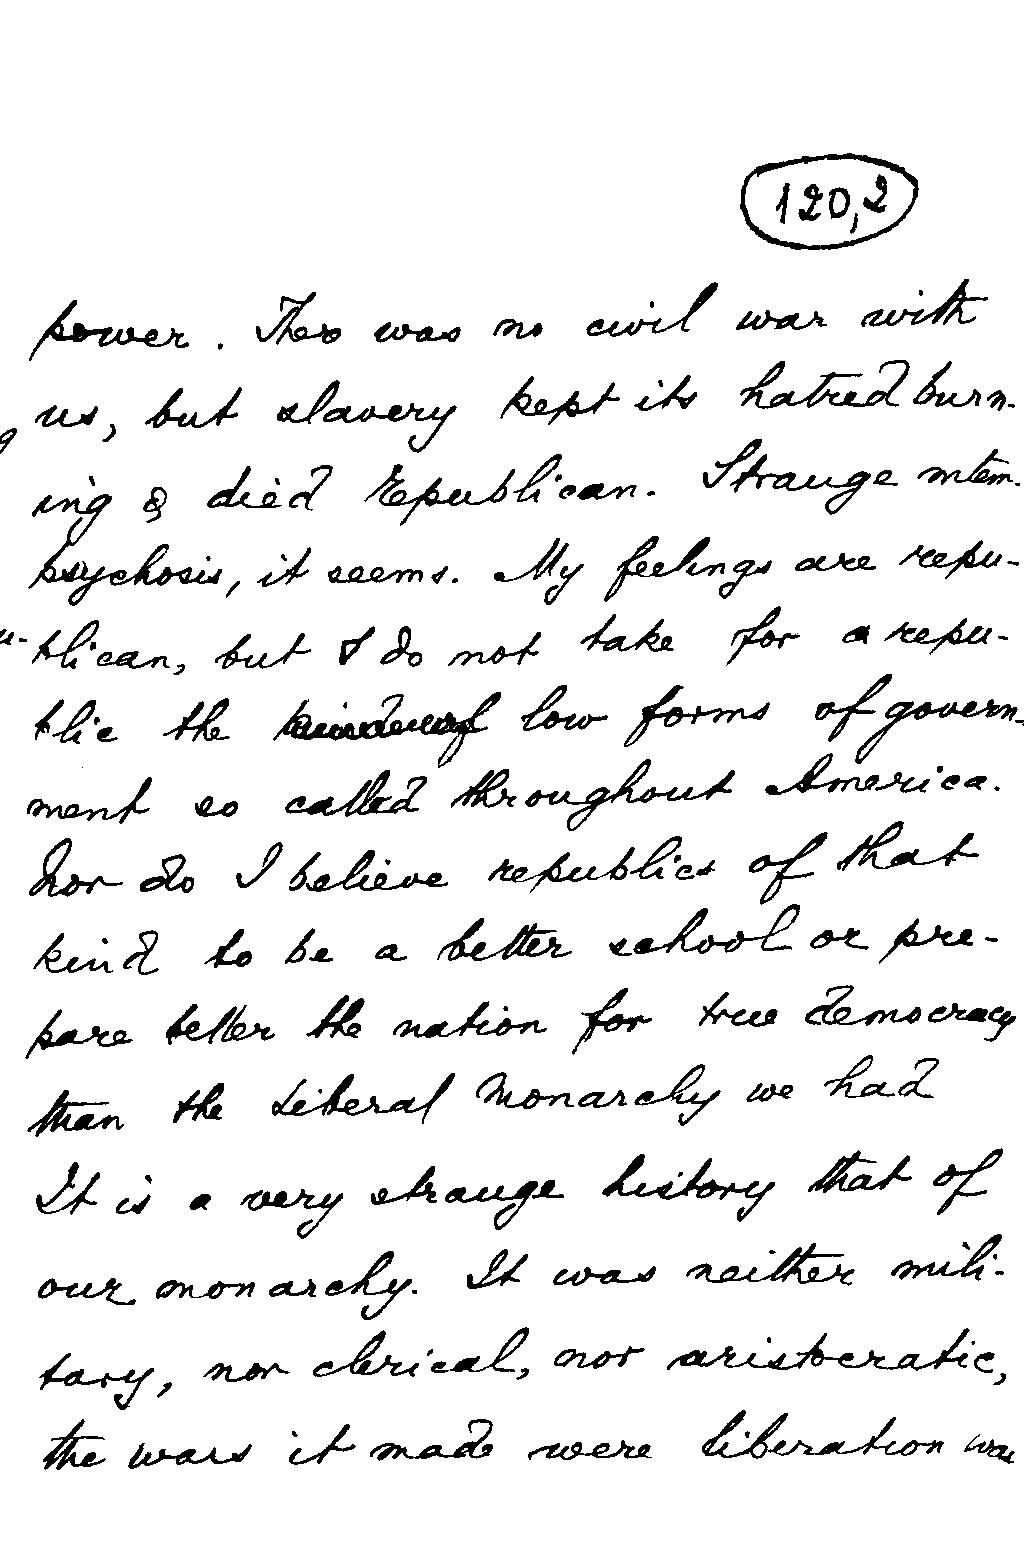 120,2
power. There was no civil war with
us, but slavery kept its hatred burn-
ing & died republican. Strange mtem-
psychosis, it seems. My feelings are repu-
blican, but I do not take for a repu-
blic the low forms of govern-
ment so called throughout America.
Nor do I believe republics of that
kind to be a better school or pre-
pare better the nation for true democracy
than the liberal Monarchy we had
It is a very strange history that of
our monarchy. It was neither mili-
tary, nor clerical, nor aristocratic,
the wars it made were liberation wars